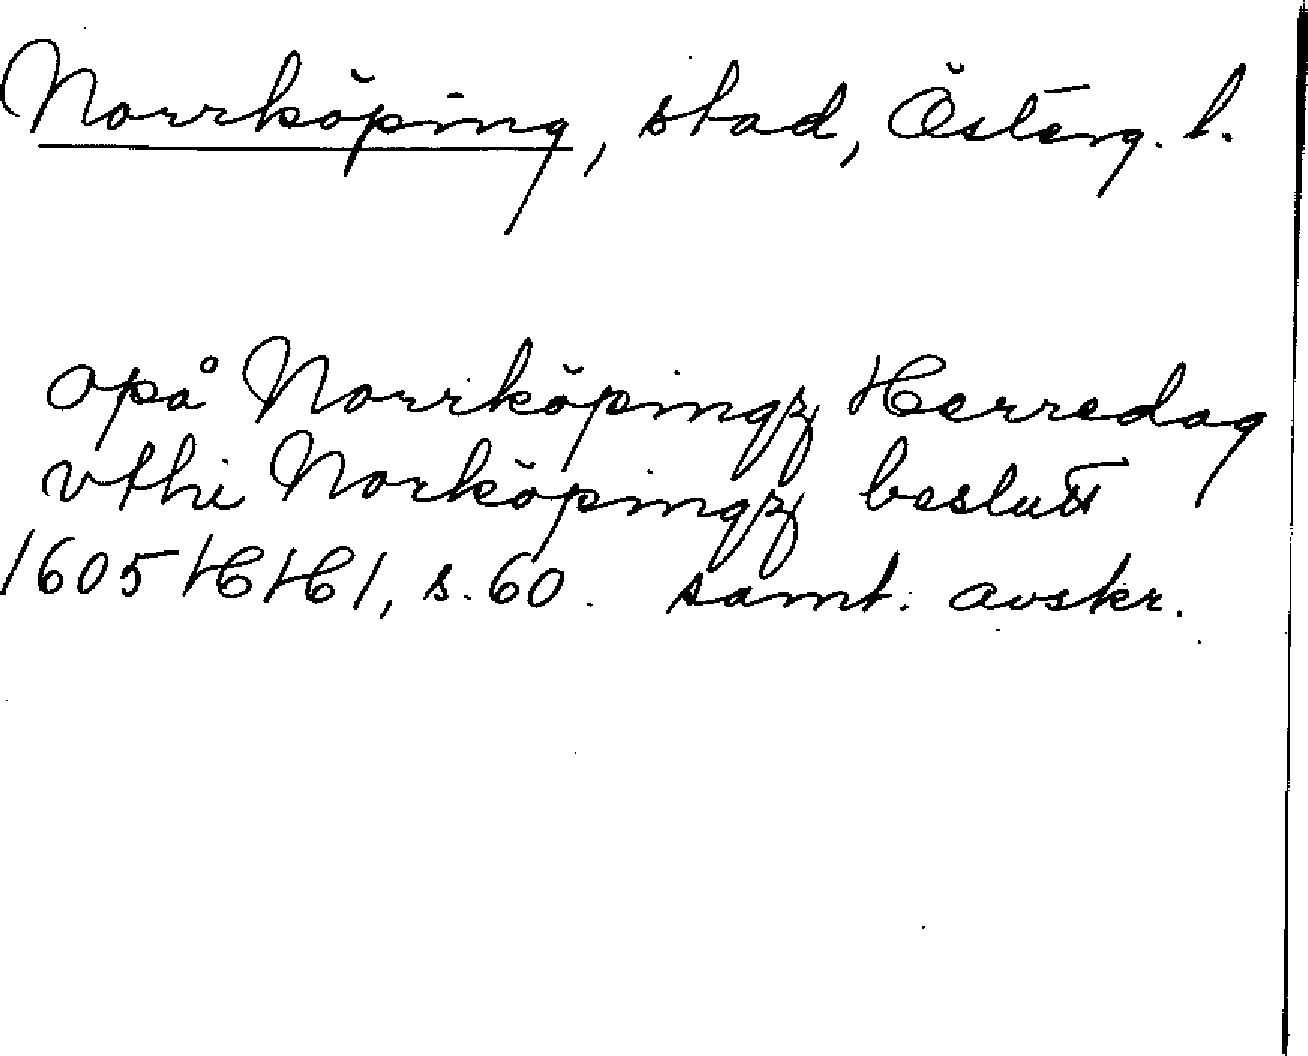 Norrköping, stad, Österg. l.
opå Norrköpingz Herredag
vthi Norköpingz beslutt
1605 HH 1, s. 60. samt. avskr.